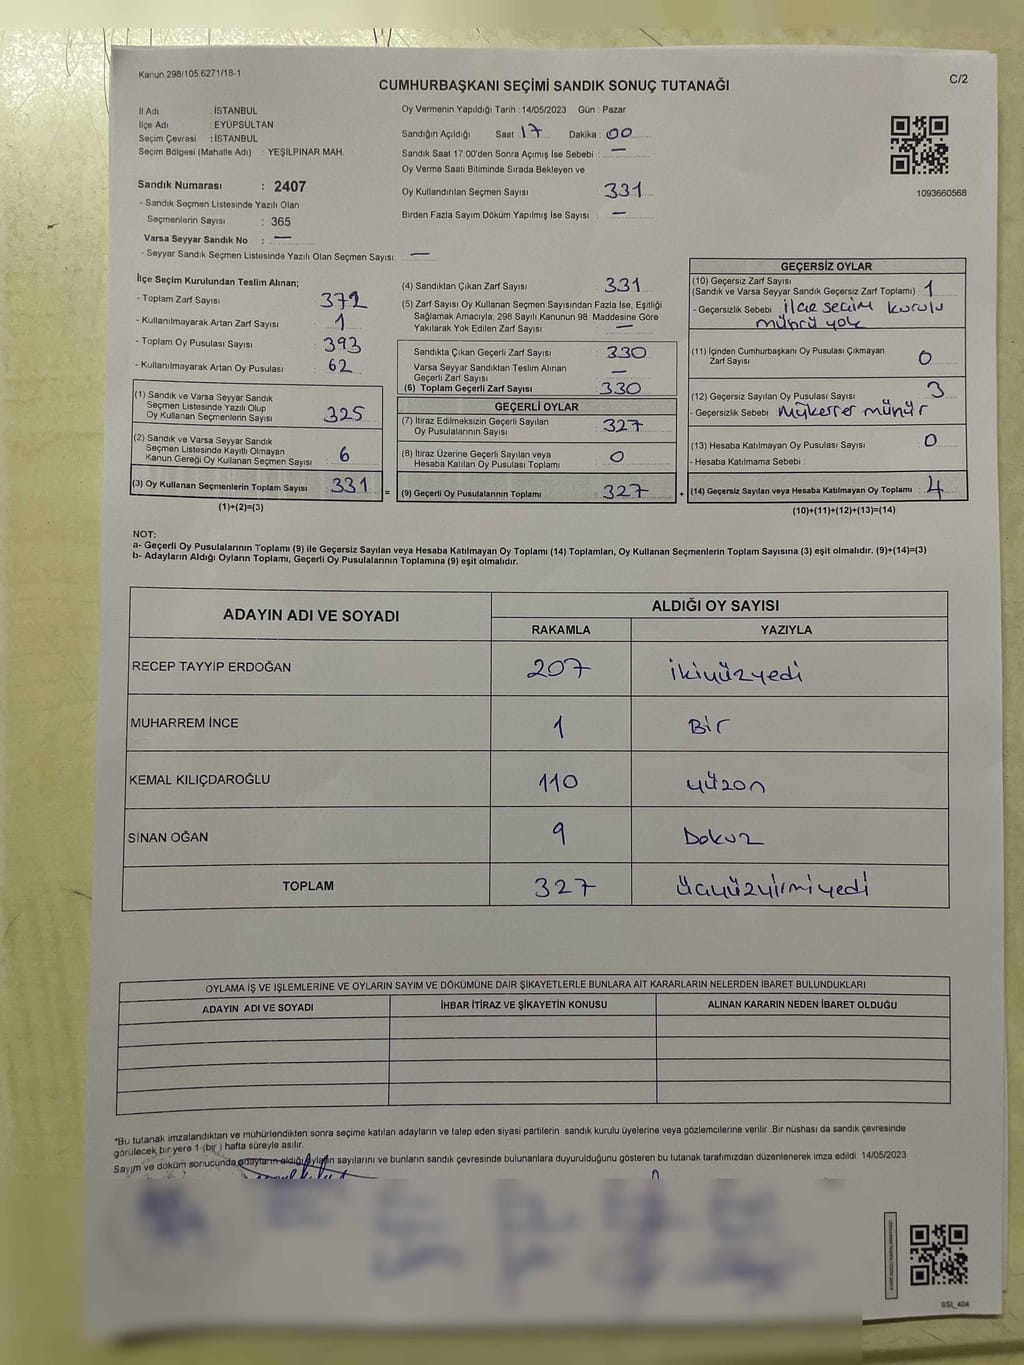 Kanun,298/105.6271/18-1
C/2
CUMHURBAŞKANI SEÇİMİ SANDIK SONUÇ TUTANAĞI
İl Adı : İSTANBUL
İlçe Adı : EYÜPSULTAN
Seçim Çevresi : İSTANBUL
Seçim Bölgesi (Mahalle Adı) : YEŞİLPINAR MAH.
Sandık Numarası : 2407
- Sandık Seçmen Listesinde Yazılı Olan
Seçmenlerin Sayısı : 365
Varsa Seyyar Sandık No : —
- Seyyar Sandık Seçmen Listesinde Yazılı Olan Seçmen Sayısı: —
Oy Vermenin Yapıldığı Tarih : 14/05/2023 Gün : Pazar
Sandığın Açıldığı Saat 17 Dakika : 00
Sandık Saat 17:00'den Sonra Açımış İse Sebebi : —
Oy Verme Saati Bitiminde Sırada Bekleyen ve
Oy Kullandırılan Seçmen Sayısı 331
Birden Fazla Sayım Döküm Yapılmış İse Sayısı : —
1093660568
İlçe Seçim Kurulundan Teslim Alınan;
- Toplam Zarf Sayısı 372
- Kullanılmayarak Artan Zarf Sayısı : 1
- Toplam Oy Pusulası Sayısı : 393
- Kullanılmayarak Artan Oy Pusulası : 62
(1) Sandık ve Varsa Seyyar Sandık
Seçmen Listesinde Yazılı Olup
Oy Kullanan Seçmenlerin Sayısı : 325
(2) Sandık ve Varsa Seyyar Sandık
Seçmen Listesinde Kayıtlı Olmayan
Kanun Gereği Oy Kullanan Seçmen Sayısı : 6
(3) Oy Kullanan Seçmenlerin Toplam Sayısı : 331 =
(1)+(2)=(3)
(4) Sandıktan Çıkan Zarf Sayısı : 331
(5) Zarf Sayısı Oy Kullanan Seçmen Sayısından Fazla İse, Eşitliği
Sağlamak Amacıyla, 298 Sayılı Kanunun 98. Maddesine Göre
Yakılarak Yok Edilen Zarf Sayısı : —
Sandıkta Çıkan Geçerli Zarf Sayısı : 330
Varsa Seyyar Sandıktan Teslim Alınan
Geçerli Zarf Sayısı : —
(6) Toplam Geçerli Zarf Sayısı : 330
GEÇERLİ OYLAR
(7) İtiraz Edilmeksizin Geçerli Sayılan
Oy Pusulalarının Sayısı : 327
(8) İtiraz Üzerine Geçerli Sayılan veya
Hesaba Katılan Oy Pusulası Toplamı : 0
(9) Geçerli Oy Pusulalarının Toplamı : 327 +
GEÇERSİZ OYLAR
(10) Geçersiz Zarf Sayısı
(Sandık ve Varsa Seyyar Sandık Geçersiz Zarf Toplamı) : 1
- Geçersizlik Sebebi : ilçe seçim kurulu
mührü yok
(11) İçinden Cumhurbaşkanı Oy Pusulası Çıkmayan
Zarf Sayısı : 0
(12) Geçersiz Sayılan Oy Pusulası Sayısı : 3
- Geçersizlik Sebebi : Mükerrer mühür
(13) Hesaba Katılmayan Oy Pusulası Sayısı : 0
- Hesaba Katılmama Sebebi :
(14) Geçersiz Sayılan veya Hesaba Katılmayan Oy Toplamı : 4
(10)+(11)+(12)+(13)=(14)
NOT:
a- Geçerli Oy Pusulalarının Toplamı (9) ile Geçersiz Sayılan veya Hesaba Katılmayan Oy Toplamı (14) Toplamları, Oy Kullanan Seçmenlerin Toplam Sayısına (3) eşit olmalıdır. (9)+(14)=(3)
b- Adayların Aldığı Oyların Toplamı, Geçerli Oy Pusulalarının Toplamına (9) eşit olmalıdır.
ADAYIN ADI VE SOYADI
ALDIĞI OY SAYISI
RAKAMLA YAZIYLA
RECEP TAYYİP ERDOĞAN 207 ikiyüzyedi
MUHARREM İNCE 1 Bir
KEMAL KILIÇDAROĞLU 110 yüzon
SİNAN OĞAN 9 Dokuz
TOPLAM 327 üçyüzyirmiyedi
OYLAMA İŞ VE İŞLEMLERİNE VE OYLARIN SAYIM VE DÖKÜMÜNE DAİR ŞİKAYETLERLE BUNLARA AİT KARARLARIN NELERDEN İBARET BULUNDUKLARI
ADAYIN ADI VE SOYADI İHBAR İTİRAZ VE ŞİKAYETİN KONUSU ALINAN KARARIN NEDEN İBARET OLDUĞU
*Bu tutanak imzalandıktan ve mühürlendikten sonra seçime katılan adayların ve talep eden siyasi partilerin sandık kurulu üyelerine veya gözlemcilerine verilir. Bir nüshası da sandık çevresinde
görülecek bir yere 1 (bir) hafta süreyle asılır.
Sayım ve döküm sonucunda adayların aldığı oyların sayılarını ve bunların sandık çevresinde bulunanlara duyurulduğunu gösteren bu tutanak tarafımızdan düzenlenerek imza edildi. 14/05/2023
SSI_40A